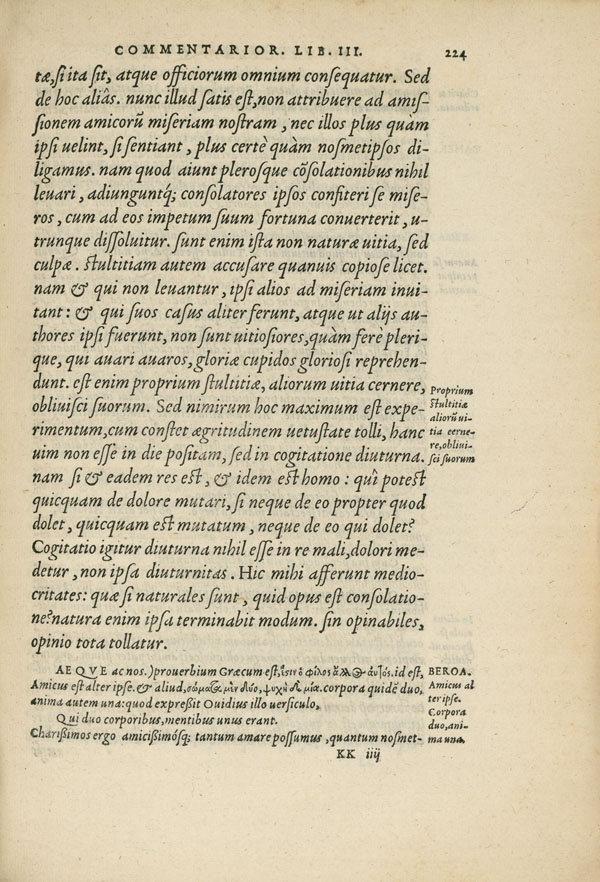 COMMENTARIOR. LIB. III. 224
tæ, si ita sit, atque officiorum omnium consequatur. Sed
de hoc aliâs. nunc illud satis est, non attribuere ad amis-
sionem amicorũ miseriam nostram, nec illos plus quàm
ipsi uelint, si sentiant, plus certè quàm nosmetipsos di-
ligamus. nam quod aiunt plerosque cõsolationibus nihil
leuari, adiunguntq́; consolatores ipsos confiteri se mise-
ros, cum ad eos impetum suum fortuna conuerterit, u-
trunque dissoluitur. sunt enim ista non naturæ uitia, sed
culpæ. stultitiam autem accusare quanuis copiose licet.
nam & qui non leuantur, ipsi alios ad miseriam inui-
tant: & qui suos casus aliter ferunt, atque ut alijs au-
thores ipsi fuerunt, non sunt uitiosiores, quàm ferè pleri-
que, qui auari auaros, gloriæ cupidos gloriosi reprehen-
dunt. est enim proprium stultitiæ, aliorum uitia cernere,
obliuisci suorum. Sed nimirum hoc maximum est expe-
rimentum, cum constet ægritudinem uetustate tolli, hanc
uim non esse in die positam, sed in cogitatione diuturna.
nam si & eadem res est, & idem est homo: quî potest
quicquam de dolore mutari, si neque de eo propter quod
dolet, quicquam est mutatum, neque de eo qui dolet?
Cogitatio igitur diuturna nihil esse in re mali, dolori me-
detur, non ipsa diuturnitas. Hic mihi afferunt medio-
critates: quæ si naturales sunt, quid opus est consolatio-
ne? natura enim ipsa terminabit modum. sin opinabiles,
opinio tota tollatur.
Proprium
stultitiæ
aliorũ ui-
tia cerne-
re, obliui-
sci suorum
AEQVE ac nos.) prouerbium Græcum est, ἐστιν ὁ φίλος ἄλλος αὐτός. id est,
Amicus est alter ipse. & aliud, σώματα μὲν δύο, ψυχὴ δὲ μία. corpora quidẽ duo,
anima autem una: quod expreßit Ouidius illo uersiculo,
Qui duo corporibus, mentibus unus erant.
Charißimos ergo amicißimósq; tantum amare possumus, quantum nosmet-
BEROA.
Amicus al
ter ipse.
Corpora
duo, ani-
ma una.
KK iiij